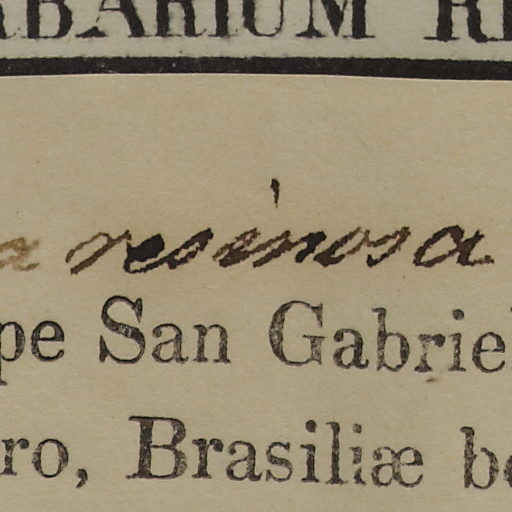 RBARIUM RE
a resinosa
pe San Gabriel
ro, Brasiliæ bo